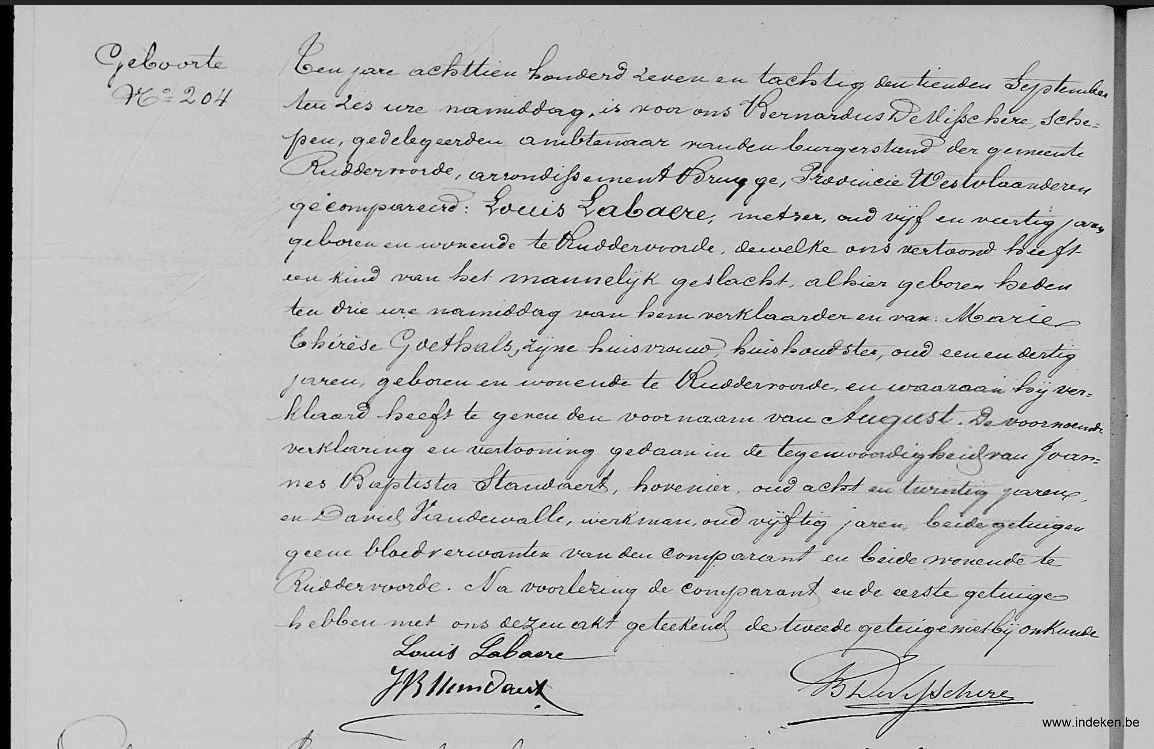 Geboorte
N° 204
Ten jare achttien honderd zeven en tachtig den tienden September
ten zes ure namiddag, is voor ons Bernardus De Visschere, sche-
pen, gedelegeerden ambtenaar van den burgerstand der gemeente
Ruddervoorde, arrondissement Brugge, Provincie Westvlaanderen
gecompareerd: Louis Labaere, metser, oud vijf en veertig jaren
geboren en wonende te Ruddervoorde, dewelke ons vertoond heeft
een kind van het mannelijk geslacht, alhier geboren heden
ten drie ure namiddag van hem verklaarder en van: Marie
Thérèse Goethals, zijne huisvrouw, huishoudster, oud een en dertig
jaren, geboren en wonende te Ruddervoorde, en waaraan hij ver-
klaard heeft te geven den voornaam van August. De voornoemde
verklaring en vertooning gedaan in de tegenwoordigheid van Joan-
nes Baptista Standaert, hovenier, oud acht en twintig jaren,
en David Vandewalle, werkman, oud vijftig jaren, beide getuigen
geene bloedverwanten van den comparant en beide wonende te
Ruddervoorde. Na voorlezing de comparant en de eerste getuige
hebben met ons dezen akt geteekend, de tweede getuige niet bij onkunde
Louis Labaere
JB Standaert
B De Visschere
www.indeken.be